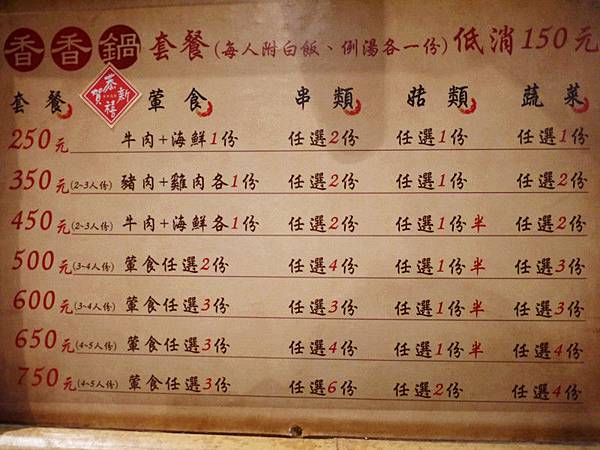 香香鍋 套餐(每人附白飯、例湯各一份)低消150元
恭賀新禧
套餐 葷食 串類 菇類 蔬菜
250元 牛肉+海鮮1份 任選2份 任選1份 任選1份
350元(2~3人份) 豬肉+雞肉各1份 任選2份 任選1份 任選2份
450元(2~3人份) 牛肉+海鮮各1份 任選2份 任選1份半 任選2份
500元(3~4人份) 葷食任選2份 任選4份 任選1份半 任選3份
600元(3~4人份) 葷食任選3份 任選3份 任選1份半 任選3份
650元(4~5人份) 葷食任選3份 任選4份 任選1份半 任選4份
750元(4~5人份) 葷食任選3份 任選6份 任選2份 任選4份